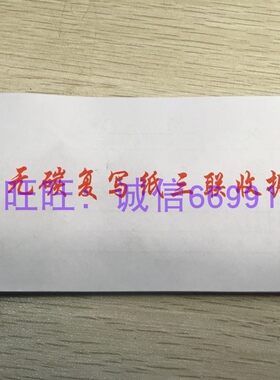 无碳复写纸三联收据
旺旺：诚信66991